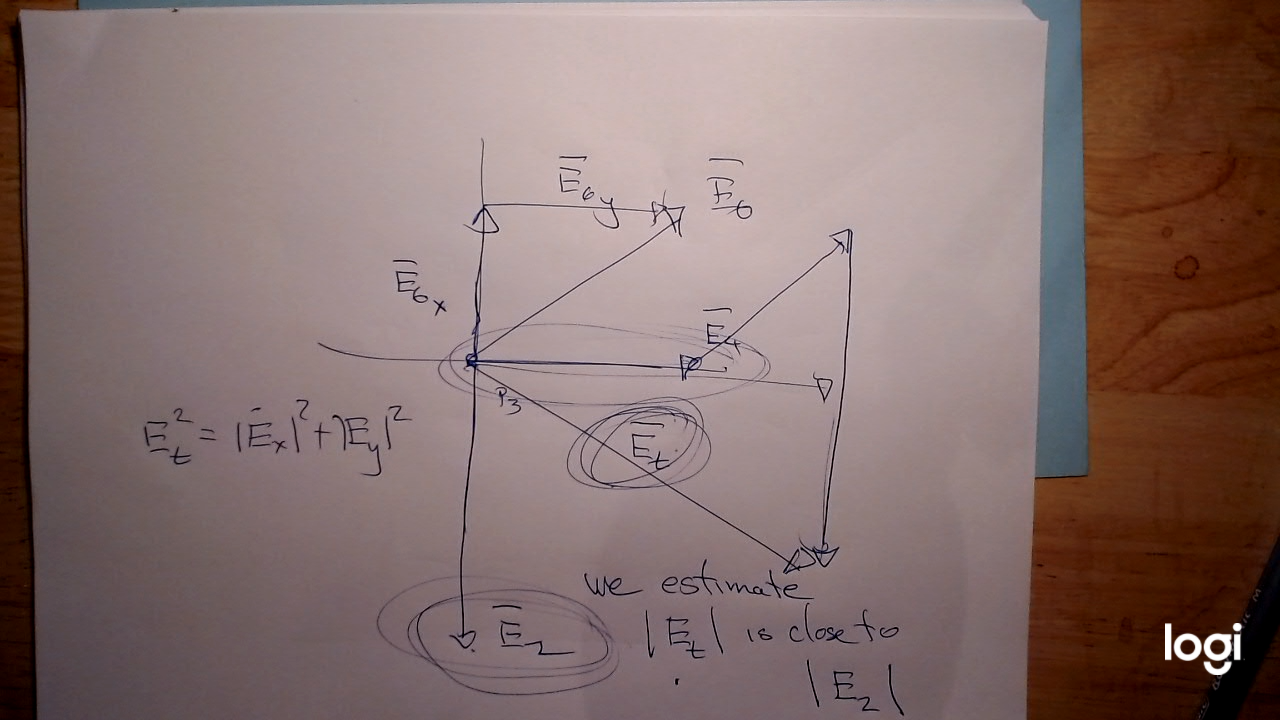 E̅₆y E̅₆
E̅₆x
E̅₄
P₃
Eₜ² = |E̅x|² + |Ey|²
E̅ₜ
we estimate
E̅₂ |Eₜ| is close to
|E₂|
logi